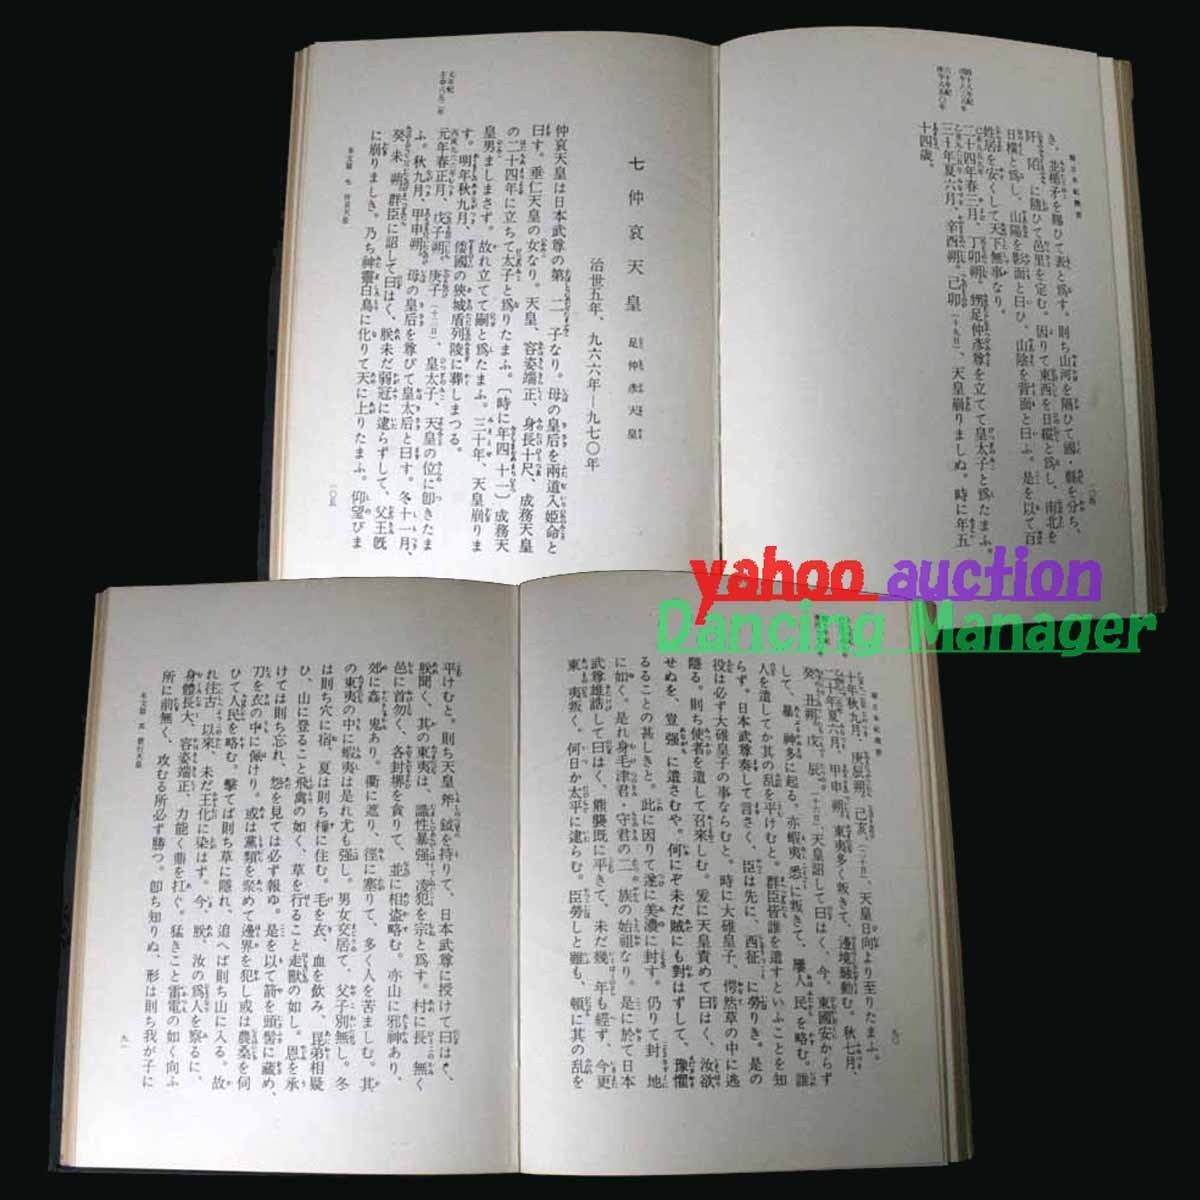 四十八年紀
六十年紀
き、並楯矛を賜ひて表と爲す。則ち山河を隔ひて國・縣を分ち、
阡陌に隨ひて邑里を定む。因りて東西を日縱と爲し、南北を
日横と爲し、山陽を影面と曰ひ、山陰を背面と曰ふ。是を以て百
姓居を安くして天下無事なり。
二十四年春三月、丁卯朔、甥足仲彦尊を立てて皇太子と爲たまふ。
三十年夏六月、辛酉朔。己卯(十九日)、天皇崩りましぬ。時に年五
十四歳。
一〇四
七 仲哀天皇 足仲彦天皇
治世五年、九六六年―九七〇年
元年紀
仲哀天皇は日本武尊の第二子なり。母の皇后を兩道入姫命と
曰す。垂仁天皇の女なり。天皇、容姿端正、身長十尺、成務天皇
の二十四年に立ちて太子と爲りたまふ。〔時に年四十一〕成務天
皇男ましまさず。故れ立てて嗣と爲たまふ。三十年、天皇崩りま
す。明年秋九月、倭國の狹城盾列陵に葬しまつる。
元年春正月、戊子朔。庚子(十三日)、皇太子、天皇の位に卽きたま
ふ。秋九月、甲申朔、母の皇后を尊びて皇太后と曰す。冬十一月、
癸未朔、群臣に詔して曰はく、朕未だ弱冠に逮らずして、父王旣
に崩りましき。乃ち神靈白鳥に化りて天に上りたまふ。仰望びま
本文篇 七 仲哀天皇
一〇五
yahoo auction
Dancing Manager
十年秋九月、庚辰朔。己亥(二十日)、天皇日向より至りたまふ。
二十年夏六月、甲申朔、東夷多く叛きて、邊境騷動む。秋七月、
癸丑朔。戊辰(十六日)、天皇詔して曰はく、今、東國安からず
して、暴神多に起る。亦蝦夷悉に叛きて、屢人民を略む。誰
人を遣してか其の亂を平けむと。群臣皆誰を遣すといふことを知
らず。日本武尊奏して言さく、臣は先に、西征に勞りき。是の
役は必ず大碓皇子の事ならむと。時に大碓皇子、愕然草の中に逃
隱る。則ち使者を遣して召來しむ。爰に天皇責めて曰はく、汝欲
せぬを、豈强に遣さむや。何にぞ未だ賊にも對はずして、豫懼
ることの甚しきと。此に因りて遂に美濃に封す。仍りて封地
に如く。是れ身毛津君・守君の二族の始祖なり。是に於て日本
武尊雄誥して曰はく、熊襲既に平きて、未だ幾年も經ず、今更
東夷叛く。何日か太平に逮らむ。臣勞しと雖も、頓に其の亂を
九〇
平けむと。則ち天皇斧鉞を持りて、日本武尊に授けて曰はく、
朕聞く、其の東夷は、識性暴强、凌犯を宗と爲す。村に長無く
邑に首勿く、各封堺を貪りて、並に相盗略む。亦山に邪神あり、
郊に姦鬼あり。衢に遮り、徑に塞りて、多く人を苦ましむ。其
の東夷の中に蝦夷は是れ尤も强し。男女交居て、父子別無し。冬
は則ち穴に宿、夏は則ち樔に住む。毛を衣、血を飲み、昆弟相疑
ひ、山に登ること飛禽の如く、草を行ること走獸の如し。恩を承
けては則ち忘れ、怨を見ては必ず報ゆ。是を以て箭を頭髻に藏め、
刀を衣の中に佩けり。或は黨類を聚めて邊界を犯し或は農桑を伺
ひて人民を略む。擊てば則ち草に隱れ、追へば則ち山に入る。故
れ往古以來、未だ王化に染はず。今、朕、汝の爲人を察るに、
身體長大、容姿端正、力能く鼎を扛ぐ。猛きこと雷電の如く向ふ
所に前無く、攻むる所必ず勝つ。卽ち知りぬ、形は則ち我が子に
本文篇 五 景行天皇
九一